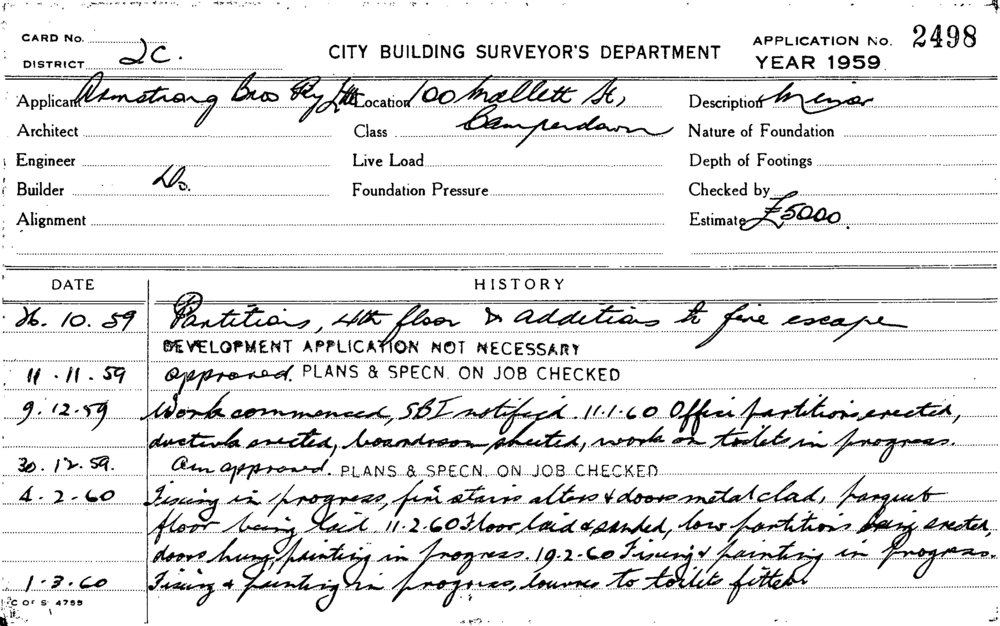 CARD No.
DISTRICT 2C.
CITY BUILDING SURVEYOR'S DEPARTMENT
APPLICATION No. 2498
YEAR 1959
Applicant Armstrong Bros Pty Ltd Location 100 Mallett St, Description Minor
Architect Class Camperdown Nature of Foundation
Engineer Live Load Depth of Footings
Builder Do. Foundation Pressure Checked by
Alignment Estimate £5000.
DATE HISTORY
26.10.59 Partitions, 4th floor & additions to fire escape
DEVELOPMENT APPLICATION NOT NECESSARY
11.11.59 approved. PLANS & SPECN. ON JOB CHECKED
9.12.59 Work commenced, SBI notified. 11.1.60 Office partitions erected,
erected, boardroom sheeted, work on toilets in progress.
30.12.59. Am approved. PLANS & SPECN. ON JOB CHECKED
4.2.60 Fixing in progress, fire stairs alters & doors metal clad, parquet
floor being laid 11.2.60 Floor laid & sanded, low partitions being erected,
doors hung, painting in progress. 19.2.60 Fixing & painting in progress.
1.3.60 Fixing & painting in progress, louvres to toilets fitted.
C OF S 4799